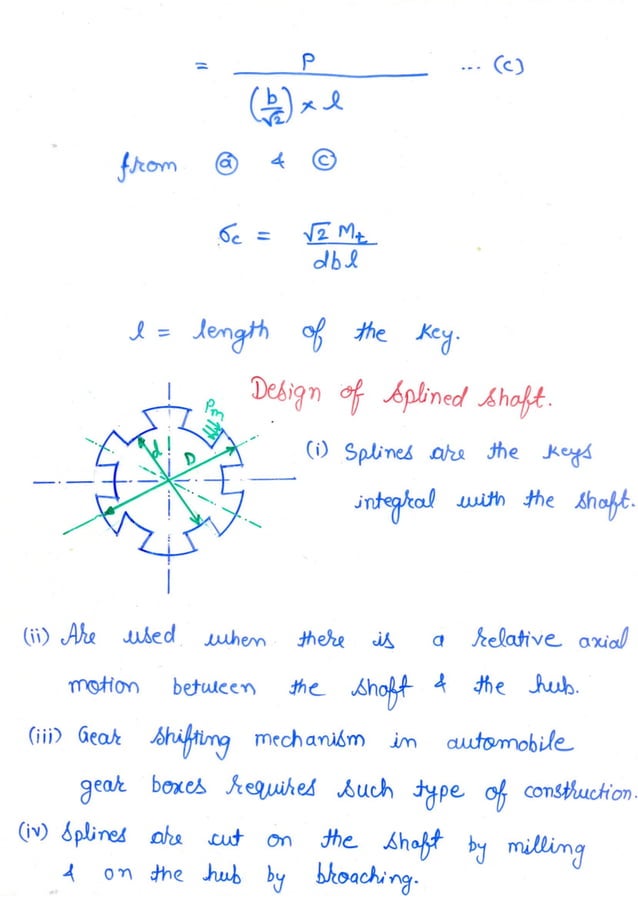 = P / ((b/√2) × l) ... (c)
from ⓐ & ⓒ
σc = √2 Mt / dbl
l = length of the key.
Design of splined shaft.
Pm
d
D
(i) Splines are the keys
integral with the shaft.
(ii) Are used when there is a relative axial
motion between the shaft & the hub.
(iii) Gear shifting mechanism in automobile
gear boxes requires such type of construction.
(iv) Splines are cut on the shaft by milling
& on the hub by broaching.